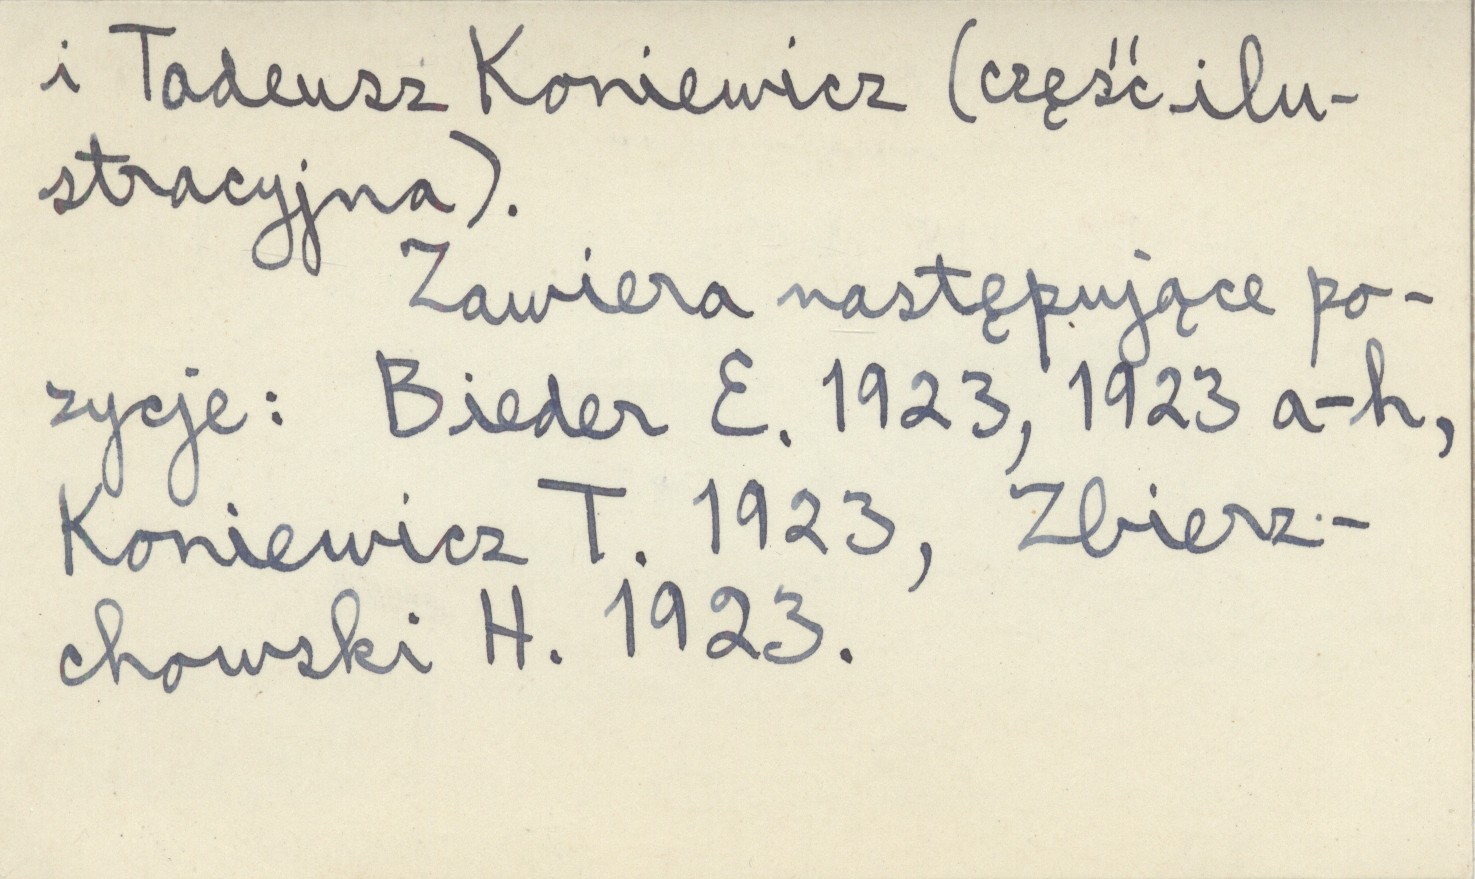 i Tadeusz Koniewicz (część ilu-
stracyjna).
Zawiera następujące po-
zycje: Bieder E. 1923, 1923 a-h,
Koniewicz T. 1923, Zbierz-
chowski H. 1923.